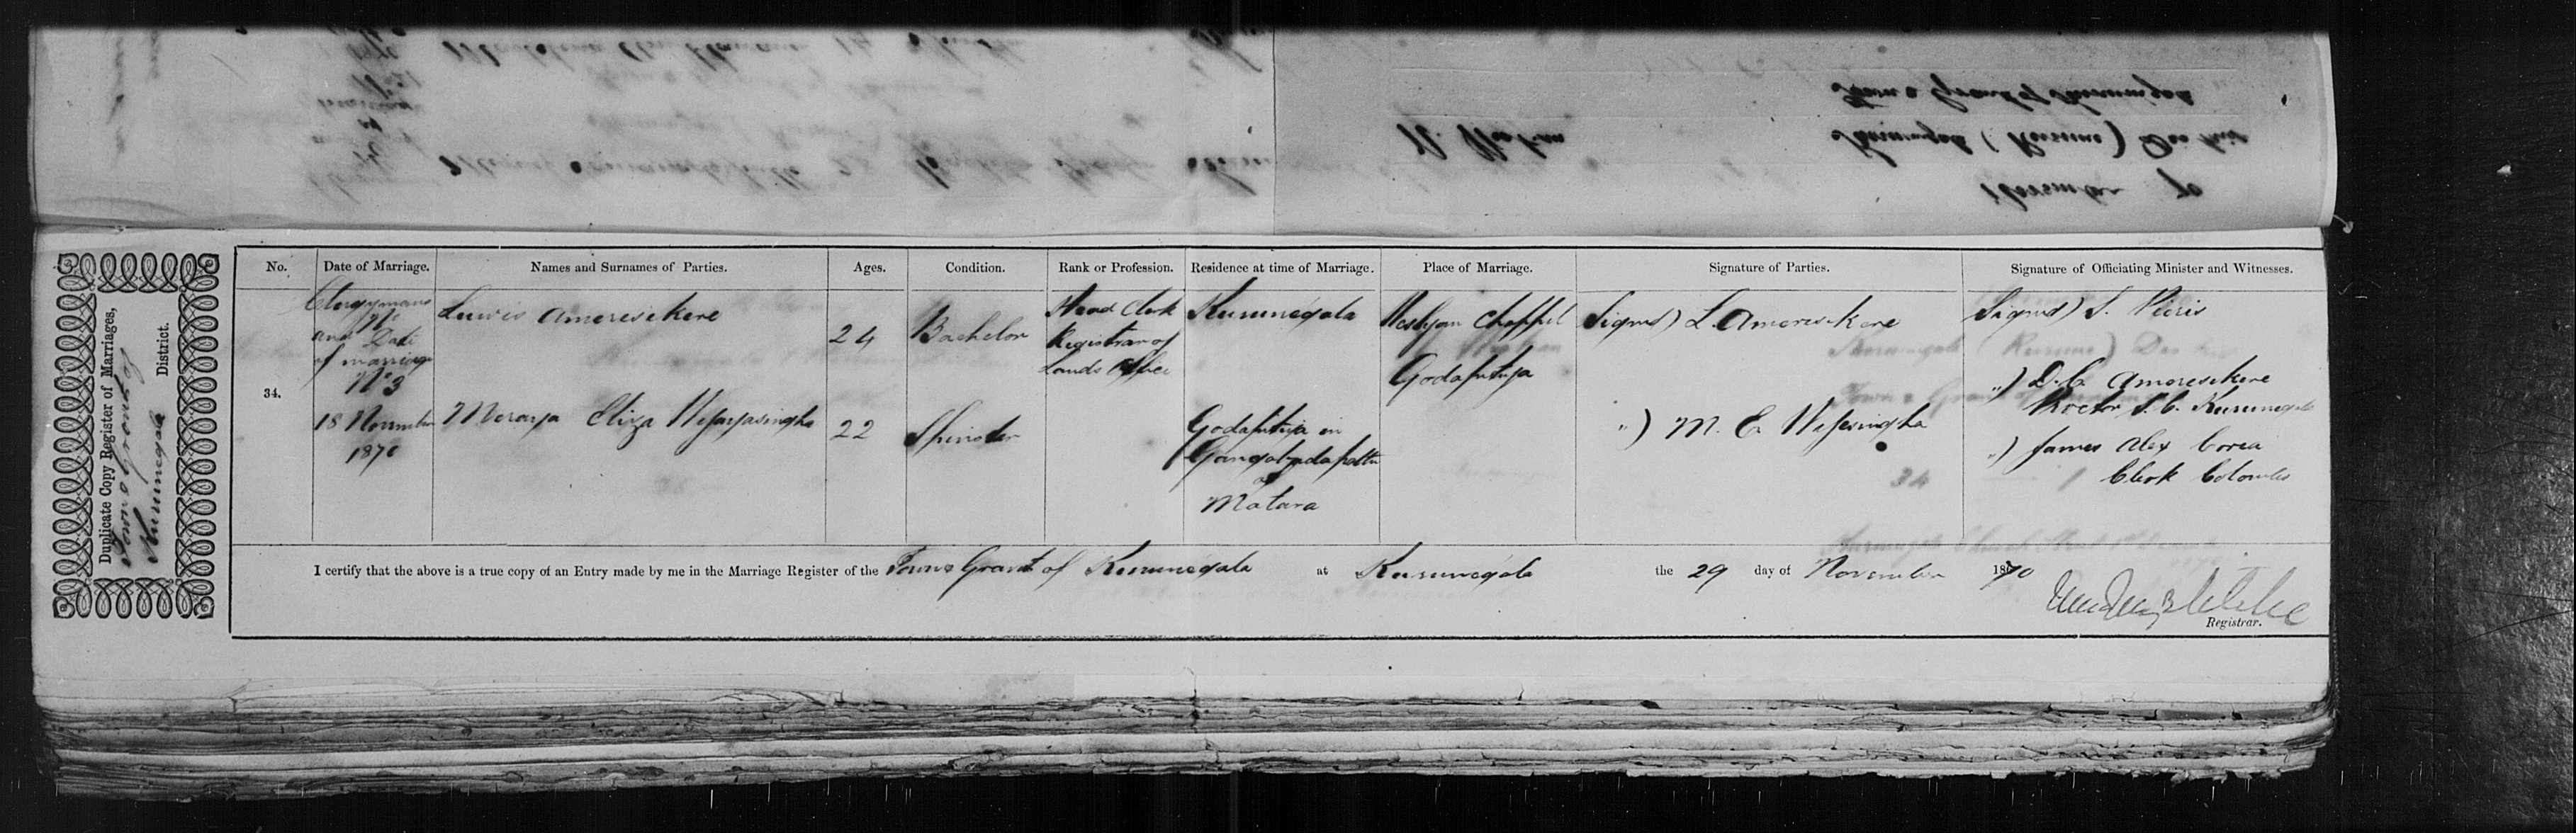 Duplicate Copy Register of Marriages,
Town & Grant of
Kurunegala
District.
No.
Date of Marriage.
Names and Surnames of Parties.
Ages.
Condition.
Rank or Profession.
Residence at time of Marriage.
Place of Marriage.
Signature of Parties.
Signature of Officiating Minister and Witnesses.
34.
Clergymans
No
and Date
of marriage
No 3
18 November
1870
Lewis Ameresekere
Moraya Eliza Wejayasingha
24
22
Bachelor
Spinster
Head Clerk
Registrar of
Lands Office
Kurunegala
Godapitija in
Matara
Weslyan Chappel
Godapitija
Signed) L. Ameresekere
") M. E. Wejesingha
Signed) S. Pieris
") D. C. Ameresekere
Proctor D. C. Kurunegala
") James Alex Corea
Clerk Colombo
I certify that the above is a true copy of an Entry made by me in the Marriage Register of the Town & Grant of Kurunegala at Kurunegala the 29 day of November 1870
Registrar.